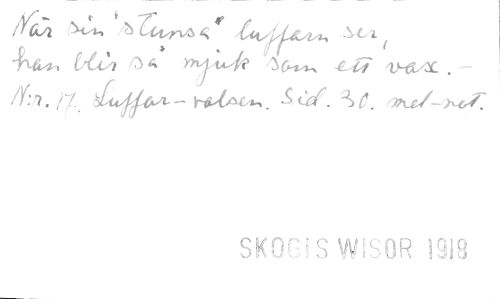 När sin "stunsa" luffarn ser,
han blir så mjuk som ett vax. –
N:r. 17. Luffar-valsen. Sid. 30. mel-not.
SKOGIS WISOR 1918